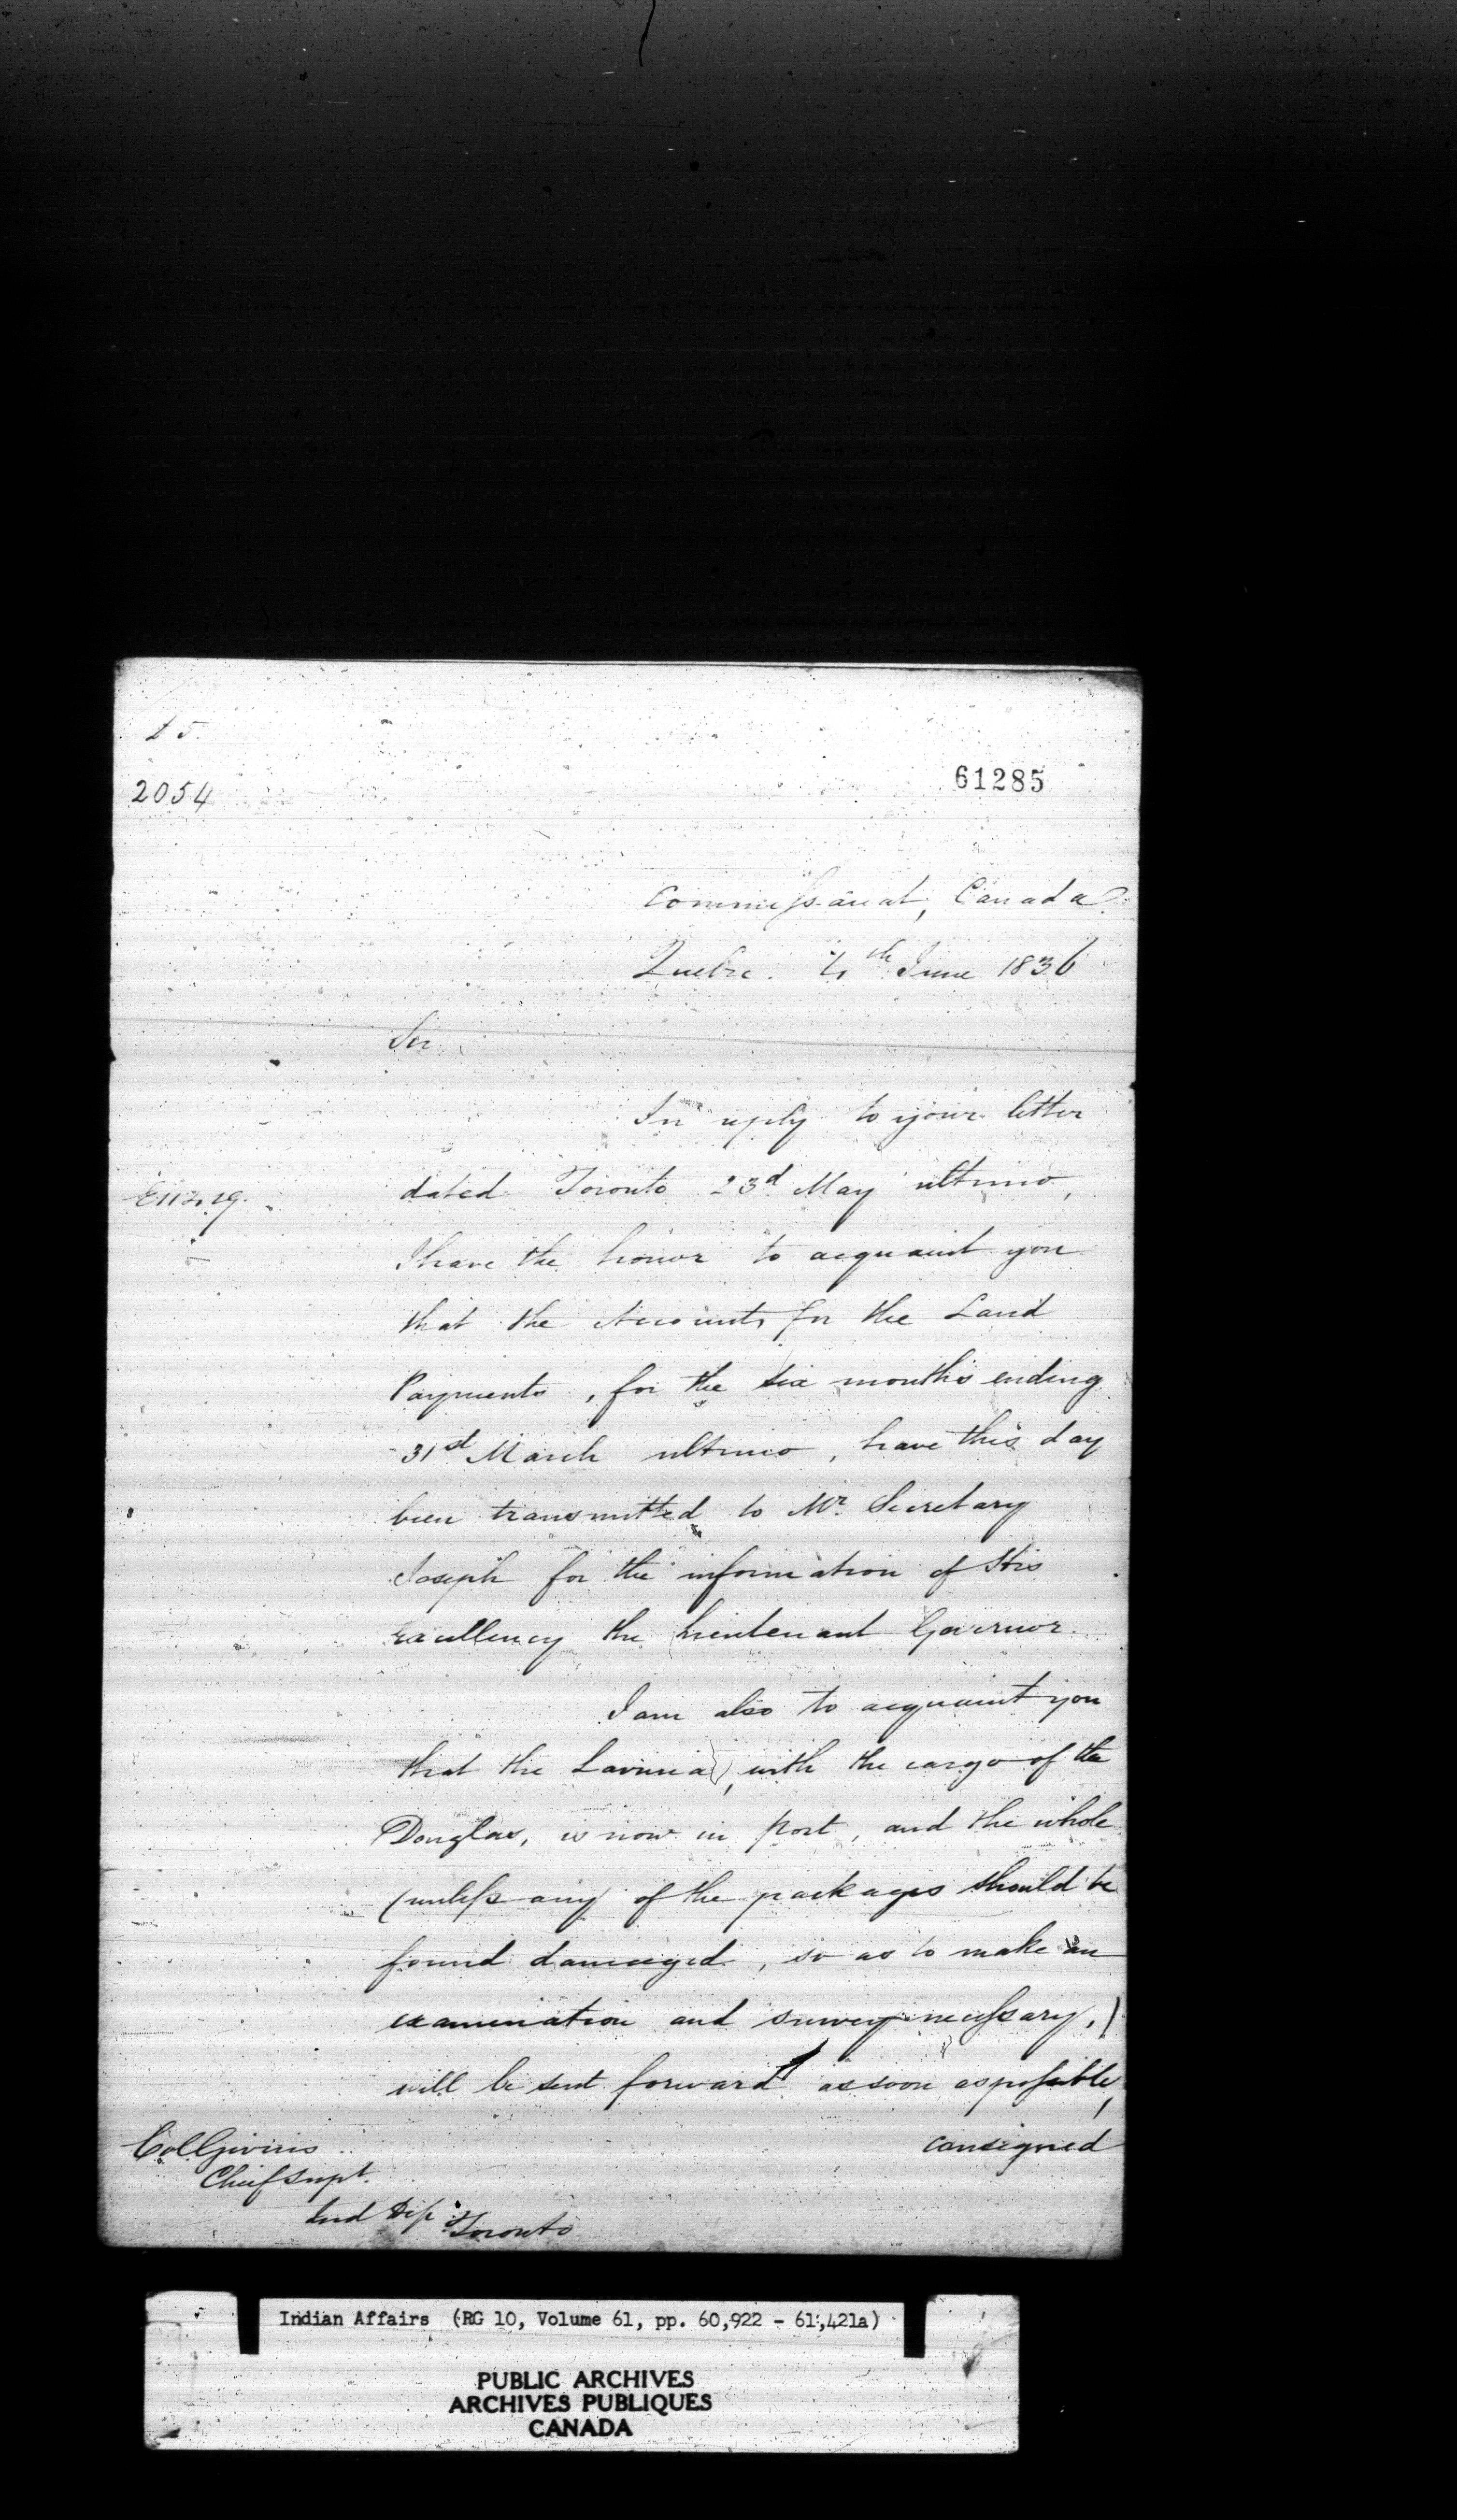 15
2054
61285
Commissariat, Canada
Quebec. 4th June 1836
Sir
In reply to your letter
dated Toronto 23d May ultimo,
I have the honor to acquaint you
that the Accounts for the Land
Payments, for the six months ending
31st March ultimo, have this day
been transmitted to Mr. Secretary
Joseph for the information of His
Excellency the Lieutenant Governor.
I am also to acquaint you
that the Lavinia, with the cargo of the
Douglas, is now in port, and the whole
(unless any of the packages should be
found damaged, so as to make an
examination and survey necessary,)
will be sent forward as soon as possible,
consigned
Col Givins
Chief Supt.
Ind Dep
Toronto
Indian Affairs (RG 10, Volume 61, pp. 60,922 - 61,421a)
PUBLIC ARCHIVES
ARCHIVES PUBLIQUES
CANADA